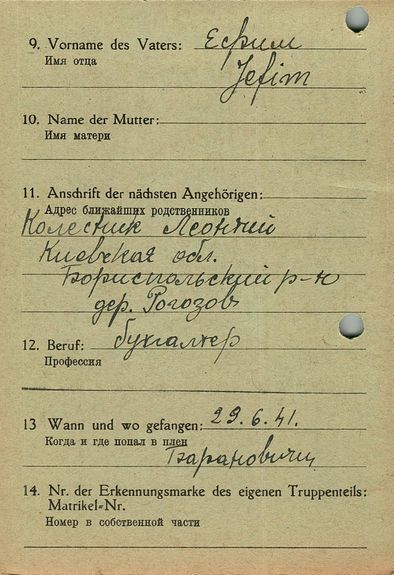 9. Vorname des Vaters: Ефим
Имя отца
Jefim
10. Name der Mutter:
Имя матери
11. Anschrift der nächsten Angehörigen:
Адрес ближайших родственников
Колестик Леонтий
Киевская обл.
Бориспольский р-н
дер. Рогозов
12. Beruf: бухгалтер
Профессия
13 Wann und wo gefangen: 29.6.41.
Когда и где попал в плен
Барановичи
14. Nr. der Erkennungsmarke des eigenen Truppenteils:
Matrikel-Nr.
Номер в собственной части